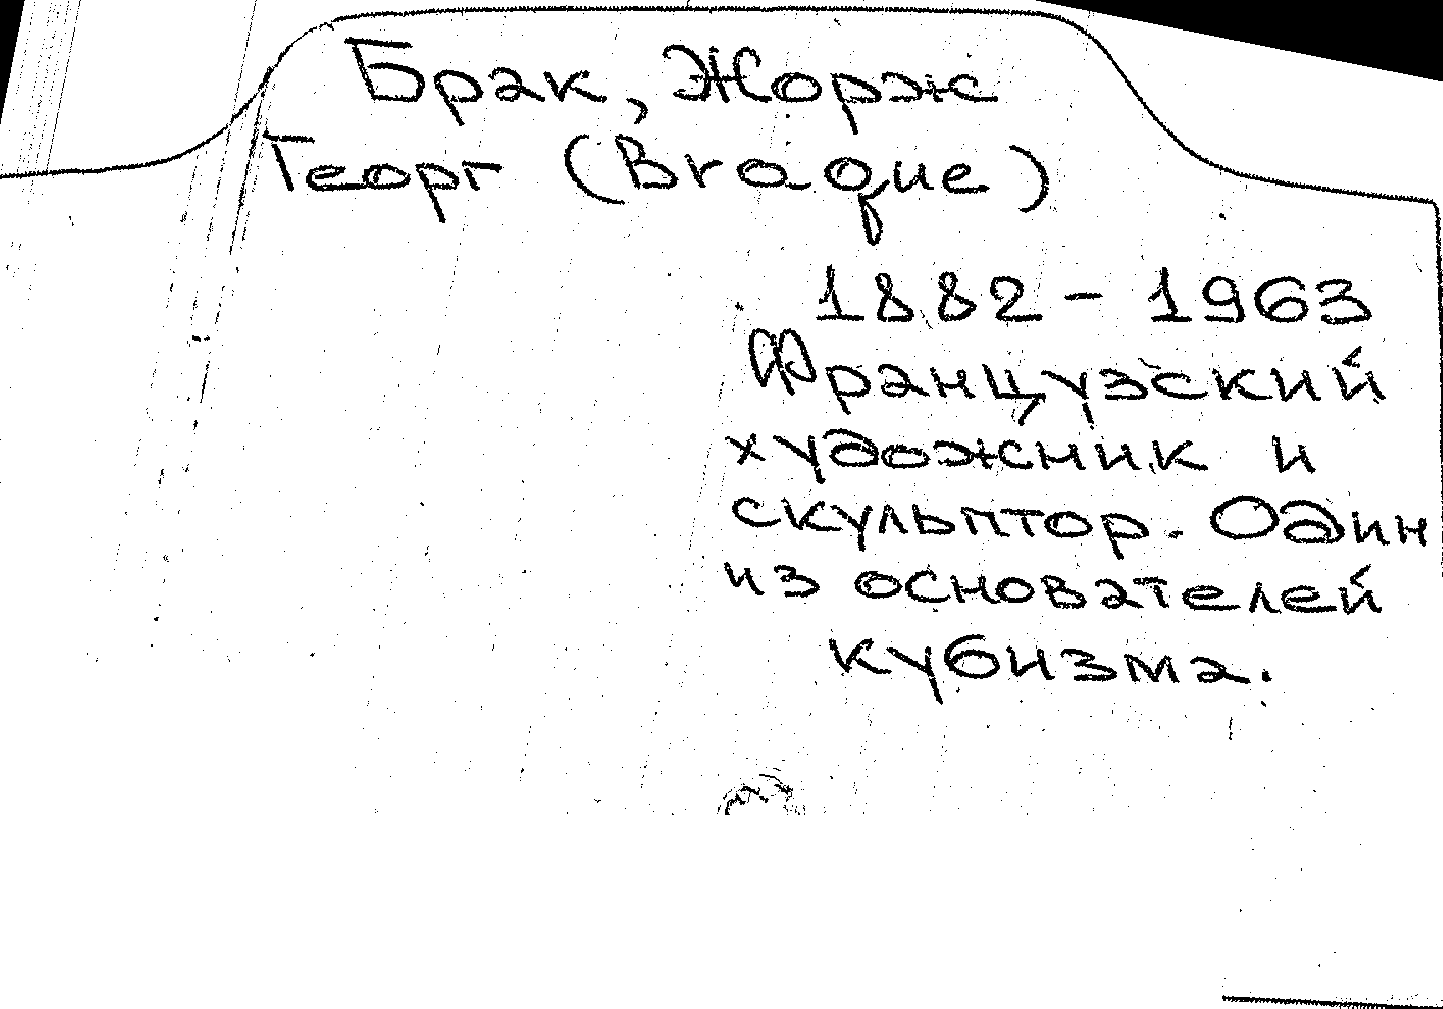 Брак, Жорж
Георг (Braque)
1882 - 1963
Французский
художник и
скульптор. Один
из основателей
кубизма.